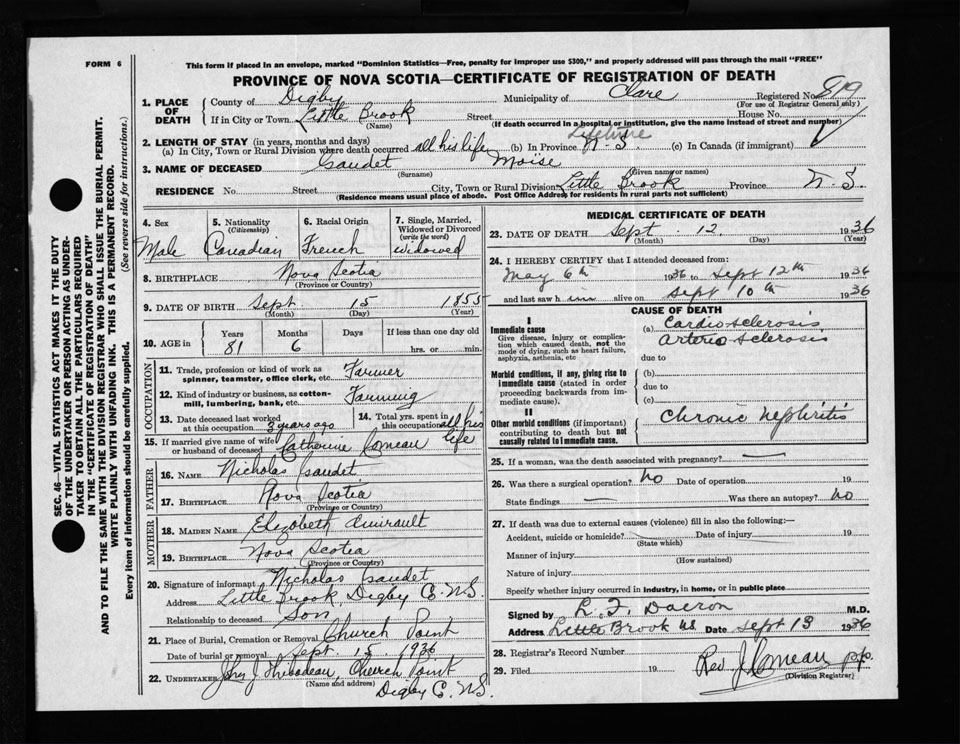 FORM 6
This form if placed in an envelope, marked "Dominion Statistics—Free, penalty for improper use $300," and properly addressed will pass through the mail "FREE"
PROVINCE OF NOVA SCOTIA—CERTIFICATE OF REGISTRATION OF DEATH
1. PLACE OF DEATH
County of Digby Municipality of Clare Registered No. 819
(For use of Registrar General only)
If in City or Town Little Brook Street House No.
(Name) (If death occurred in a hospital or institution, give the name instead of street and number)
2. LENGTH OF STAY (in years, months and days) Lifetime
(a) In City, Town or Rural Division where death occurred all his life (b) In Province N.S. (c) In Canada (if immigrant)
3. NAME OF DECEASED Gaudet Moise
(Surname) (Given name or names)
RESIDENCE No. Street City, Town or Rural Division Little Brook Province N.S.
(Residence means usual place of abode. Post Office Address for residents in rural parts not sufficient)
4. Sex 5. Nationality 6. Racial Origin 7. Single, Married,
(Citizenship) Widowed or Divorced
(write the word)
Male Canadian French widowed
8. BIRTHPLACE Nova Scotia
(Province or Country)
9. DATE OF BIRTH Sept. 15 1855
(Month) (Day) (Year)
10. AGE in Years Months Days If less than one day old
81 6 hrs. or min.
OCCUPATION
11. Trade, profession or kind of work as
spinner, teamster, office clerk, etc. Farmer
12. Kind of industry or business, as cotton-
mill, lumbering, bank, etc. Farming
13. Date deceased last worked
at this occupation 3 years ago
14. Total yrs. spent in
this occupation all his life
15. If married give name of wife
or husband of deceased Catherine Comeau
FATHER
16. NAME Nicholas Gaudet
17. BIRTHPLACE Nova Scotia
(Province or Country)
MOTHER
18. MAIDEN NAME Elizabeth Amirault
19. BIRTHPLACE Nova Scotia
(Province or Country)
20. Signature of informant Nicholas Gaudet
Address Little Brook, Digby C. N.S.
Relationship to deceased Son
21. Place of Burial, Cremation or Removal Church Point
Date of burial or removal Sept. 15, 1936
22. UNDERTAKER John J Thibodeau, Church Point
(Name and address)
Digby C. N.S.
MEDICAL CERTIFICATE OF DEATH
23. DATE OF DEATH Sept. 12. 1936
(Month) (Day) (Year)
24. I HEREBY CERTIFY that I attended deceased from:
May 6th 1936 to Sept 12th 1936
and last saw him alive on Sept 10th 1936
CAUSE OF DEATH
I
Immediate cause
Give disease, injury or complica-
tion which caused death, not the
mode of dying, such as heart failure,
asphyxia, asthenia, etc
(a) Cardio-sclerosis
Arterio sclerosis
due to
Morbid conditions, if any, giving rise to
immediate cause (stated in order
proceeding backwards from im-
mediate cause).
(b)
due to
(c)
II
Other morbid conditions (if important)
contributing to death but not
causally related to immediate cause.
Chronic Nephritis
25. If a woman, was the death associated with pregnancy? —
26. Was there a surgical operation? No Date of operation 19
State findings — Was there an autopsy? No
27. If death was due to external causes (violence) fill in also the following:—
Accident, suicide or homicide? Date of injury 19
(State which)
Manner of injury
(How sustained)
Nature of injury
Specify whether injury occurred in industry, in home, or in public place
Signed by M.D.
Address Little Brook NS Date Sept 13 1936
28. Registrar's Record Number
29. Filed 19 Rev. J. Comeau p.p.
(Division Registrar)
SEC. 46—VITAL STATISTICS ACT MAKES IT THE DUTY
OF THE UNDERTAKER OR PERSON ACTING AS UNDER-
TAKER TO OBTAIN ALL THE PARTICULARS REQUIRED
IN THE "CERTIFICATE OF REGISTRATION OF DEATH"
AND TO FILE THE SAME WITH THE DIVISION REGISTRAR WHO SHALL ISSUE THE BURIAL PERMIT.
WRITE PLAINLY WITH UNFADING INK. THIS IS A PERMANENT RECORD.
Every item of information should be carefully supplied. (See reverse side for instructions.)